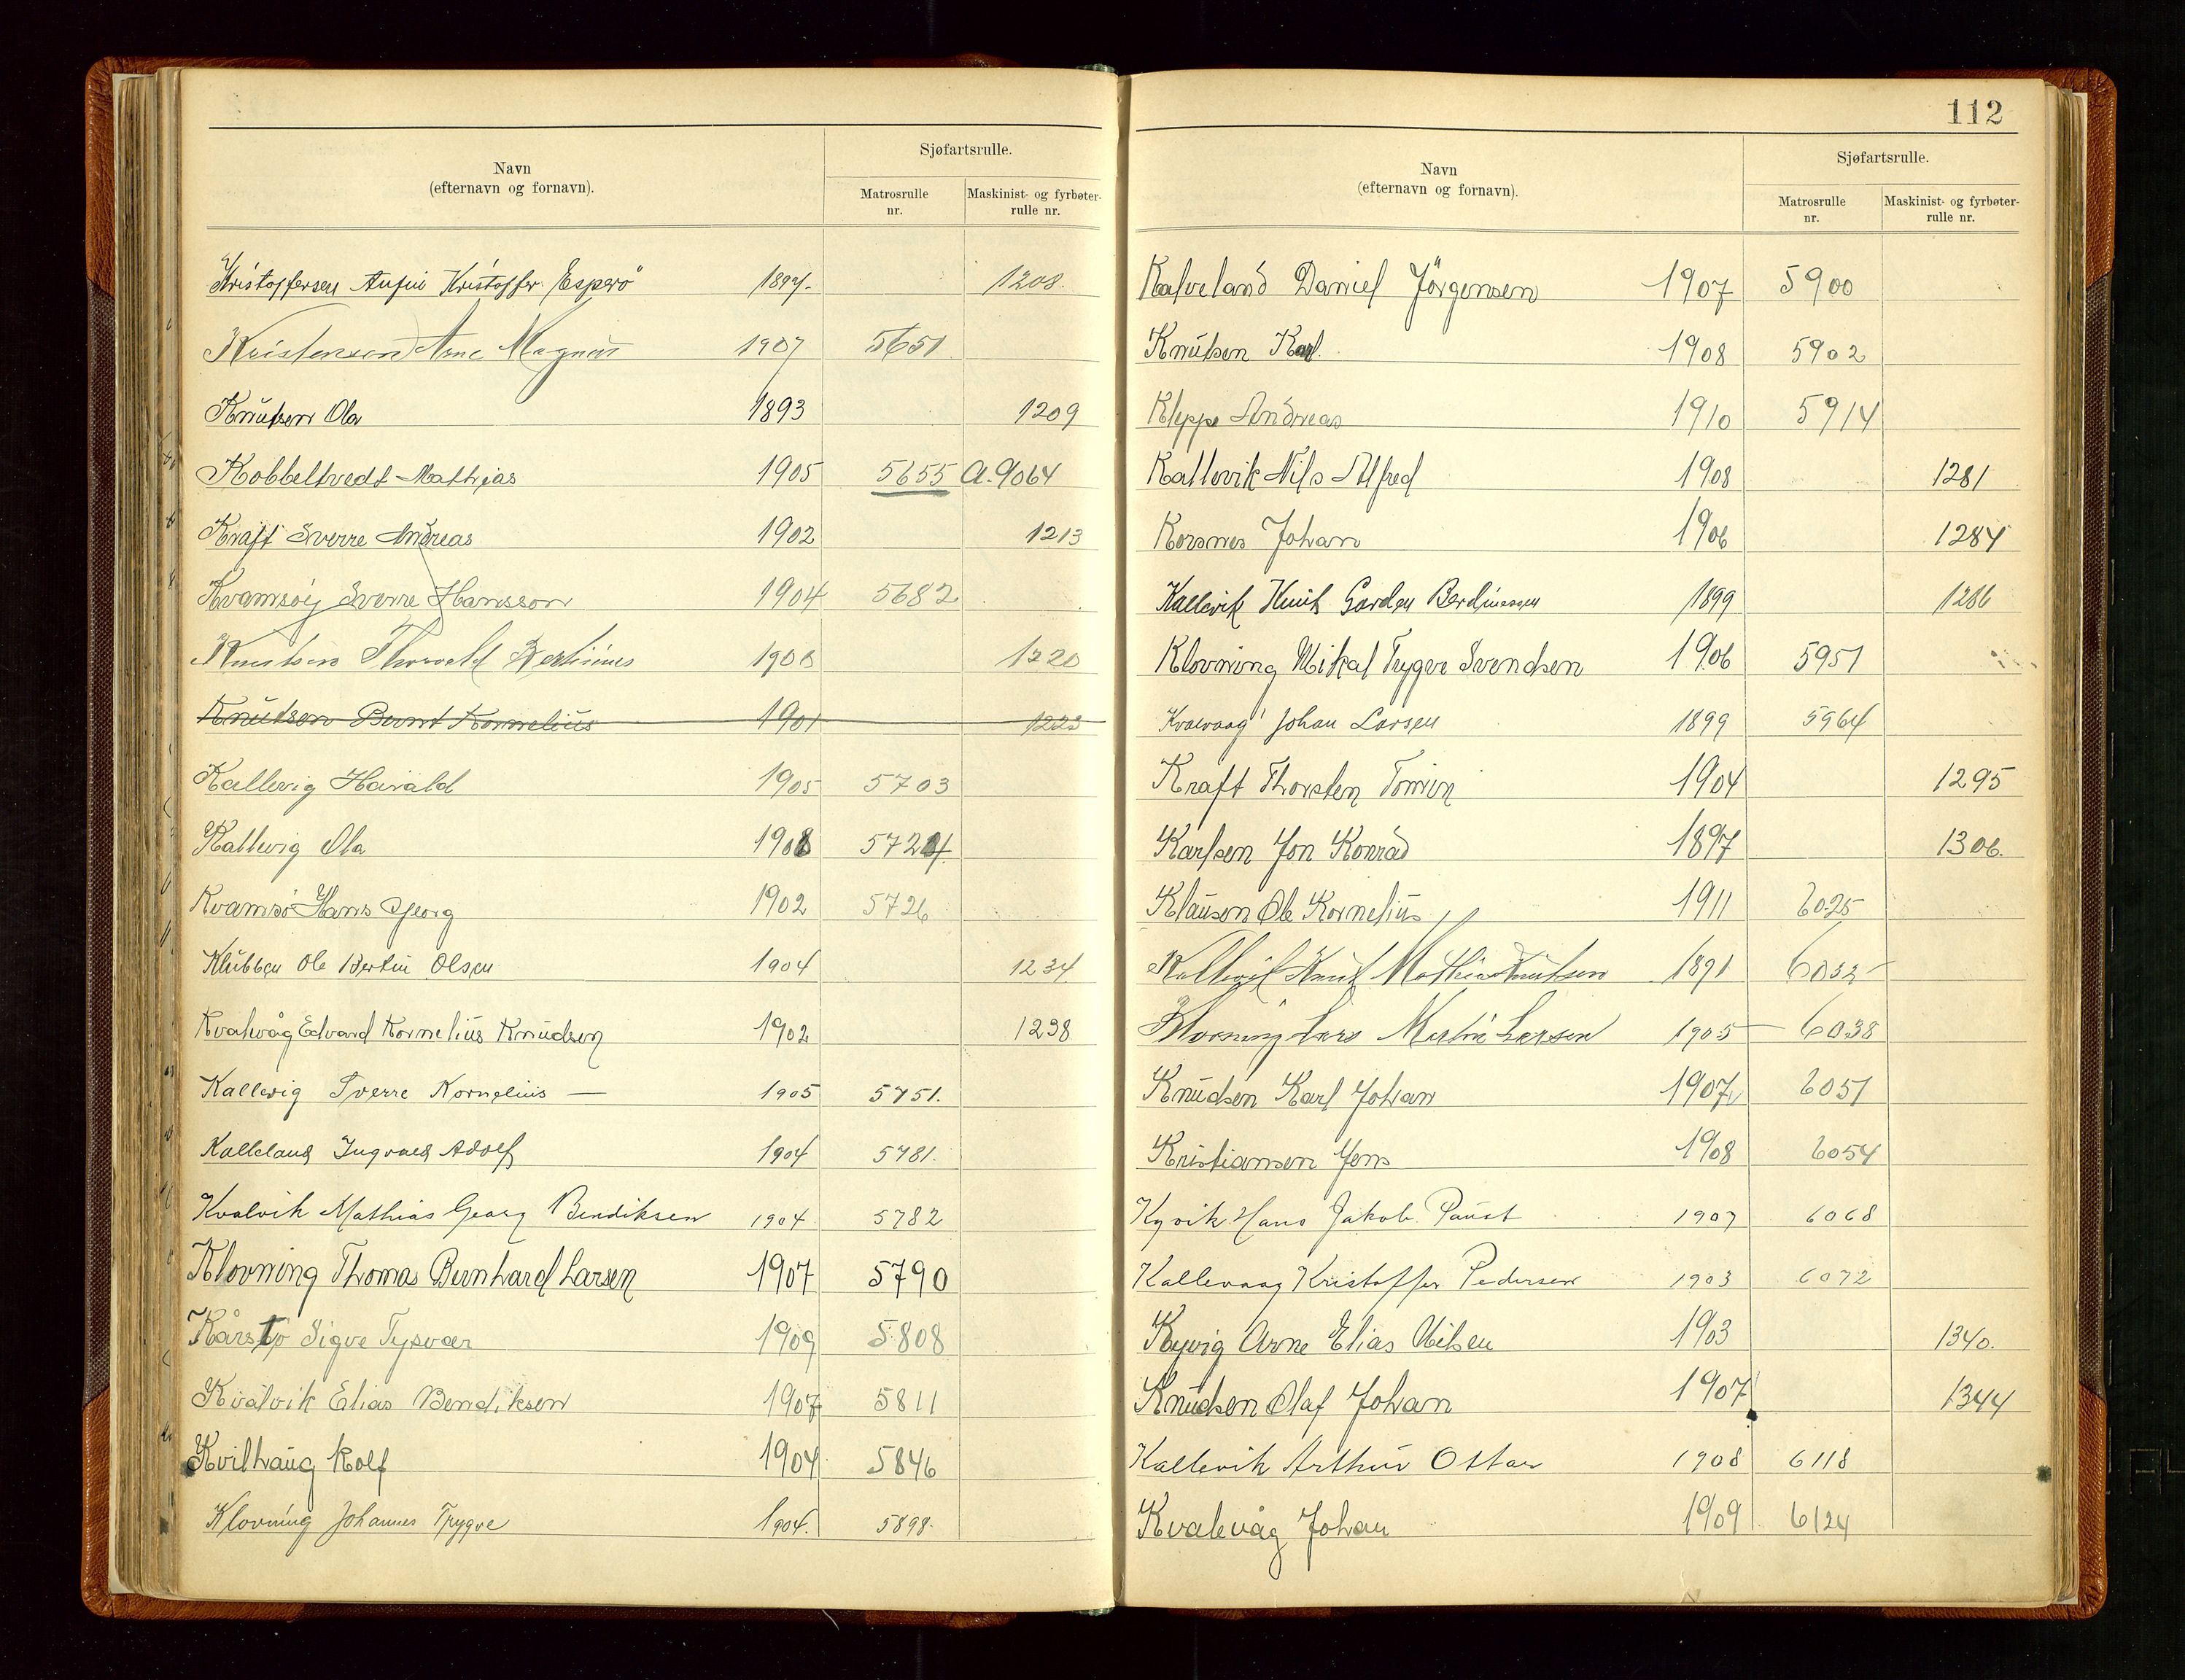 Navn
(efternavn og fornavn).
Sjøfartsrulle.
Matrosrulle nr.
Maskinist- og fyrbøter-rulle nr.
Kristoffersen Kristoffer Esperø 1897. 1208.
Kristensen Arne Magnus 1907 5651
Knutsen Ola 1893 1209
Kobbeltvedt Mathias 1905 5655 A.9064
Kraft Sverre Andreas 1902 1213
Kvamsøy Sverre Hansson 1904 5682
Knutsen Thorvald Bertinius 1908 1220
Knutsen Bernt Kornelius 1901 1223
Kallevig Harald 1905 5703
Kallevig Ola 1908 5724
Kvamsø Hans Georg 1902 5726
Klubben Ole Bertin Olsen 1904 1234
Kvalvåg Edvard Kornelius Knudsen 1902 1238
Kallevig Sverre Kornelius — 1905 5751.
Kalleland Ingvald Adolf 1904 5781.
Kvalvik Mathias Georg Bendiksen 1904 5782
Klovning Thomas Bernhard Larsen 1907 5790
Kårstø Sigve Tysvær 1909 5808
Kvalvik Elias Bendiksen 1907 5811
Kvilhaug Rolf 1904 5846
Klovning Johannes Trygve 1904. 5898.
112
Navn
(efternavn og fornavn).
Sjøfartsrulle.
Matrosrulle nr.
Maskinist- og fyrbøter-rulle nr.
Kalveland Daniel Jörgensen 1907 5900
Knutsen Karl 1908 5902
Kleppe Andreas 1910 5914
Kallevik Nils Alfred 1908 1281
Korsnes Johan 1906 1284
Kallevik Knut Gorden Berdinessen 1899 1286
Klovning Mikal Trygve Svendsen 1906 5951
Kvalvaag Johan Larsen 1899 5964
Kraft Thorsten 1904 1295
Karlsen Jon Konrad 1897 1306.
Klausen Ole Kornelius 1911 6025
Kallevik Knut Mathias Knutsen 1891 6032
Klovning Lars Martin Larsen 1905 6038
Knudsen Karl Johan 1907 6051
Kristiansen Jens 1908 6054
Kyvik Hans Jakob Paust 1907 6068
Kallevaag Kristoffer Pedersen 1903 6072
Kyvig Arne Elias Nilsen 1903 1340.
Knudsen Olaf Johan 1907 1344
Kallevik Arthur Ottar 1908 6118
Kvalevåg Johan 1909 6124